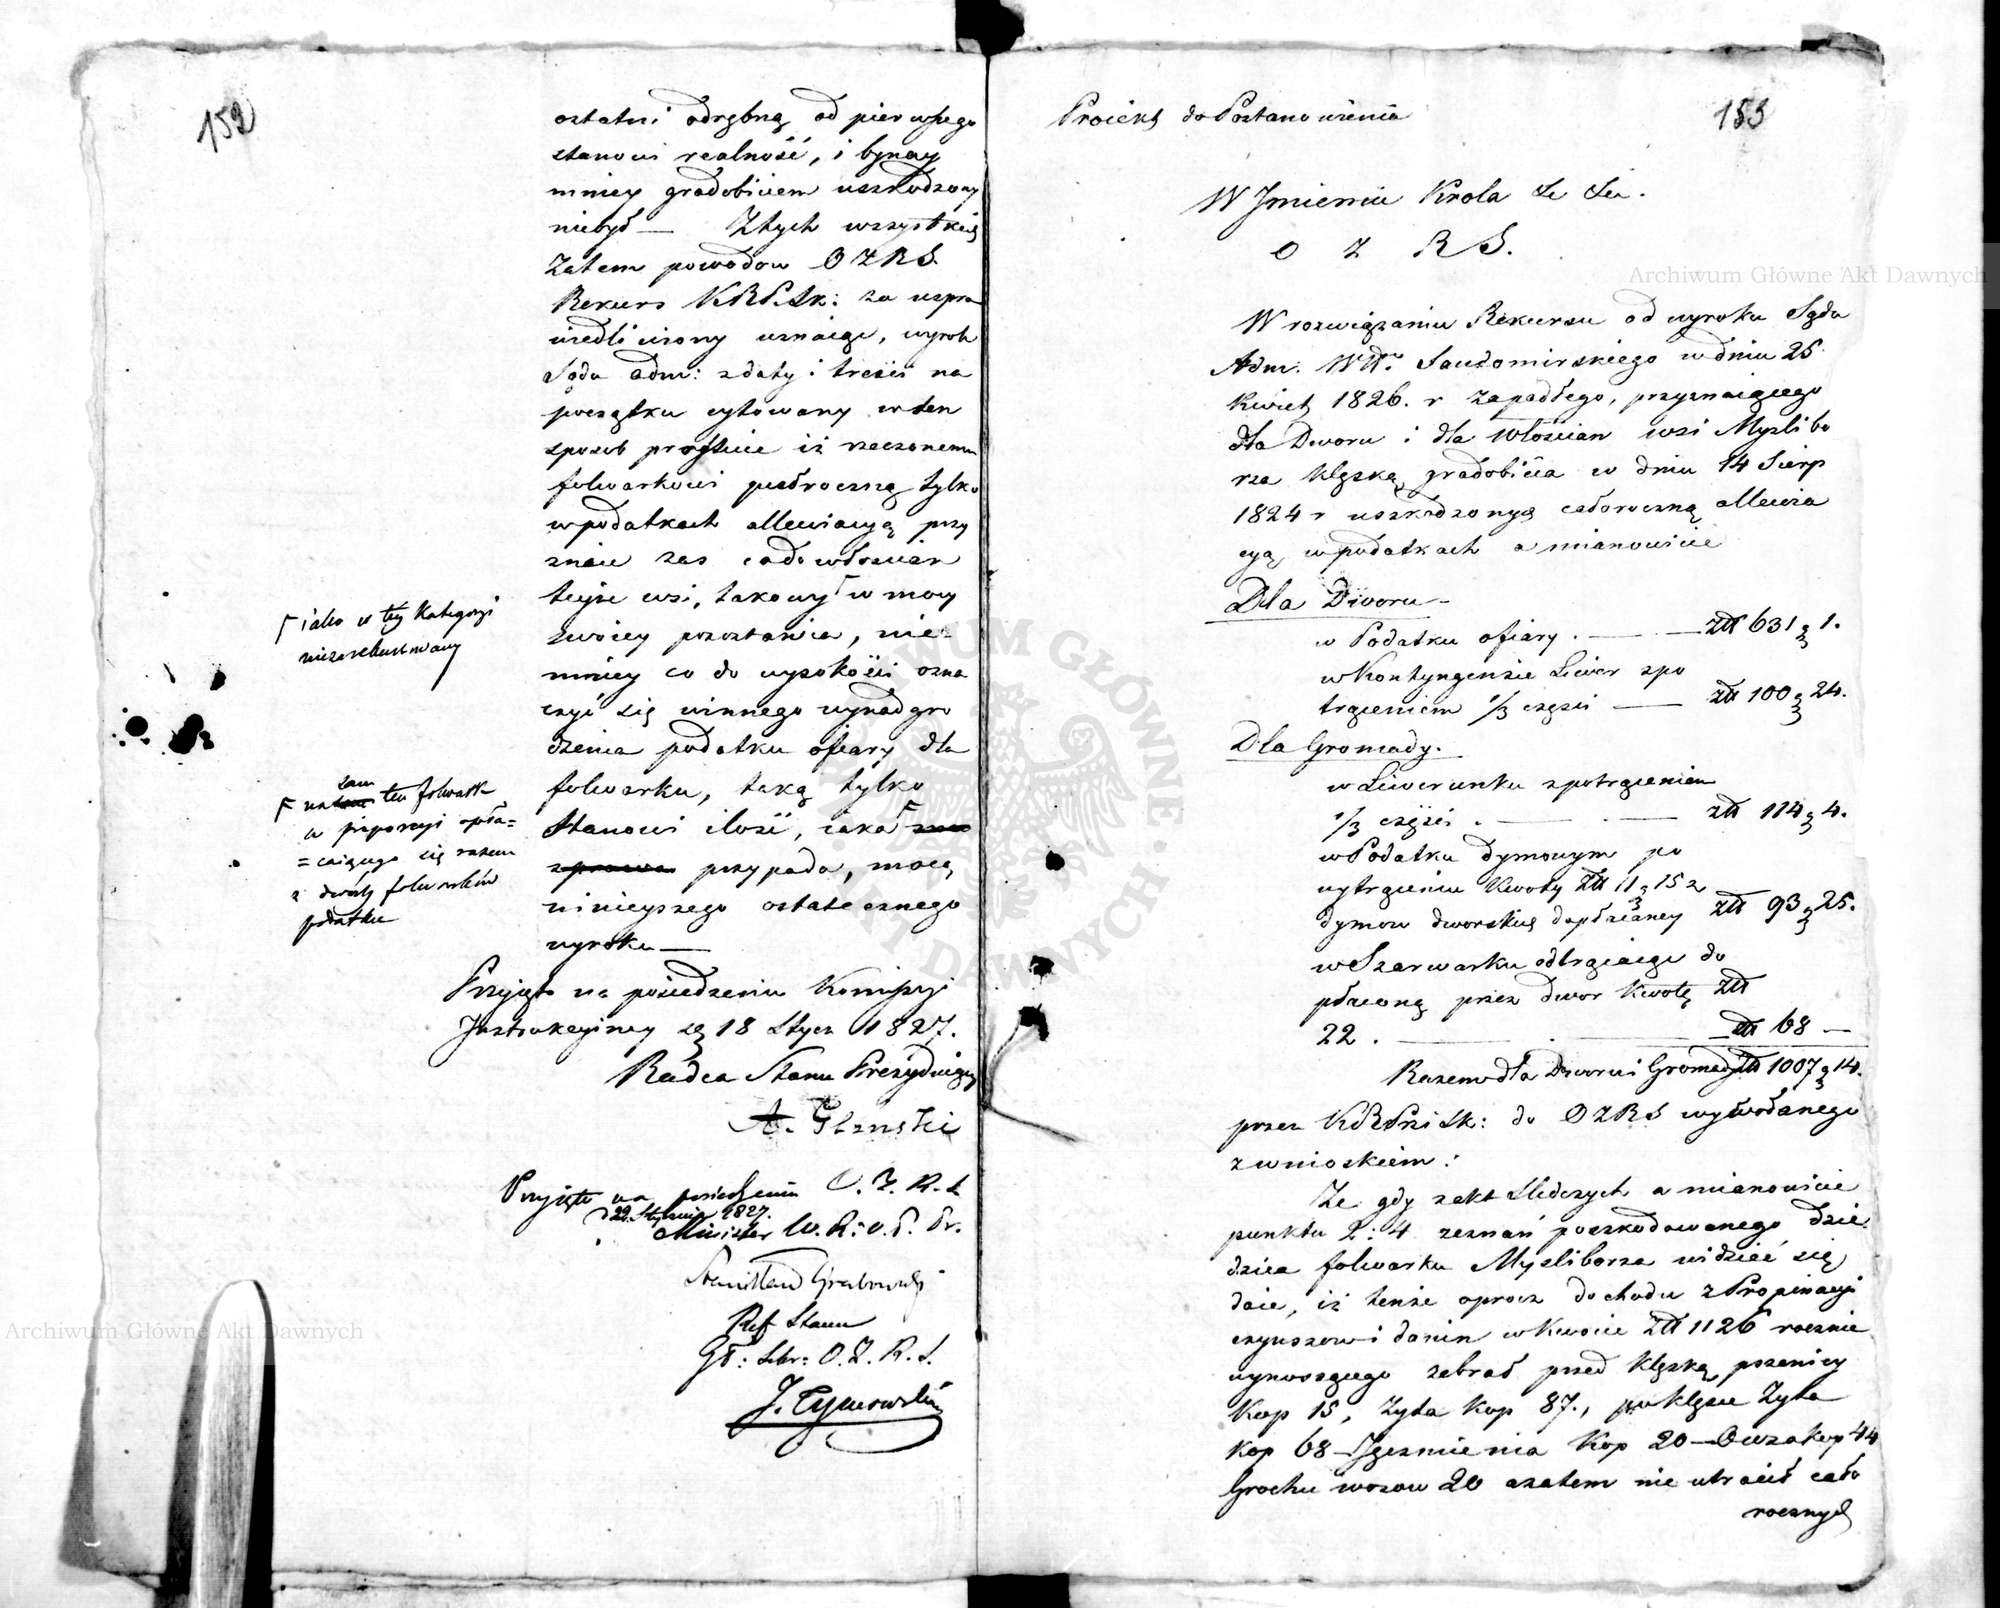 152
ostatni odrębną od pierwszego
stanowi realność, i bynay
mniey gradobiciem uszkodzony
niebył — Ztych wszystkich
zatem powodow OZRS.
Rekurs KRPSk: za uspra
wiedliwiony uznaiąc, wyrok
Sądu Adm: z daty i treści na
początku cytowany w ten
sposob prostuie iż rzeczonemu
folwarkowi pułroczną tylko
w podatkach allewiacyą przy
znaie zas co do włoscian
teyże wsi, takowy ⌈ w mocy
swoiey pozostawia, nie
mniey co do wysokości ozna
czyć się winnego wynadgro
dzenia podatku ofiary dla
folwarku, taką tylko
Stanowi ilość, iaka ⌈
przypada, mocą
ninieyszego ostatecznego
wyroku —
⌈ iako w tey Kategoryi
niezarekursowany
⌈ na sam ten folwark
w proporcyi opła=
=caiącego się razem
z dwóch folwarków
podatku
Przyięto na posiedzeniu Kommissyi
Instrukcyiney d. 18 Stycz 1827.
Radca Stanu Prezyduiący
A.
Przyięto na posiedzeniu O. Z. R. S.
d 22 Stycznia 1827.
Minister W. R. i O. P. Pr.
Stanisław Grabowski
Ref Stanu
Gł: Sekr: O. Z. R. S.
J. Tymowski
153
Proiekt do Postanowienia
W Jmieniu Krola &c &c.
O Z R S.
W rozwiązaniu Rekursu od wyroku Sądu
Adm. Wdztwa Sandomirskiego w dniu 25
Kwiet 1826. r zapadłego, przyznaiącego
dla Dworu i dla włościan wsi Myslibo
rza klęską gradobicia w dniu 14 Sierp
1824 r uszkodzonych całoroczną allewia
cyą w podatkach a mianowicie
Dla Dworu —
w Podatku ofiary . — — złl 631 g 1.
w Kontyngensie Liwer zpo
trąceniem 1/3 części — złl 100 g 24.
Dla Gromady.
w Liwerunku z potrąceniem
1/3 części . — — złl 114 g 4.
w Podatku dymowym po
wytrąceniu Kwoty złl 11 g 15 z
dymow dworskich dopłacaney złl 93 g 25.
w Szarwarku odtrącaiąc do
płaconą przez dwor Kwotę złl
22 . — — złl 68 —
Razem dla Dworu i Gromady złl 1007 g 14.
przez KRPriSk: do OZRS wywołanego
z wnioskiem:
Że gdy z akt śledczych a mianowicie
punktu 2: 4 zeznań poszkodowanego dzie
dzica folwarku Mysliborza widzieć się
daie, iż tenże oprocz dochodu z Propinacyi
czynszow i danin w Kwocie złl 1126 rocznie
wynoszącego zebrał przed klęską pszenicy
Kop 15, Zyta Kop 87., po klęsce Zyta
Kop 68 — Jęczmienia Kop 20 — Owsa kop 44
Grochu wozow 20 a zatem nie utracił cało
rocznych
Archiwum Główne Akt Dawnych
Archiwum Główne Akt Dawnych
ARCHIWUM GŁÓWNE AKT DAWNYCH